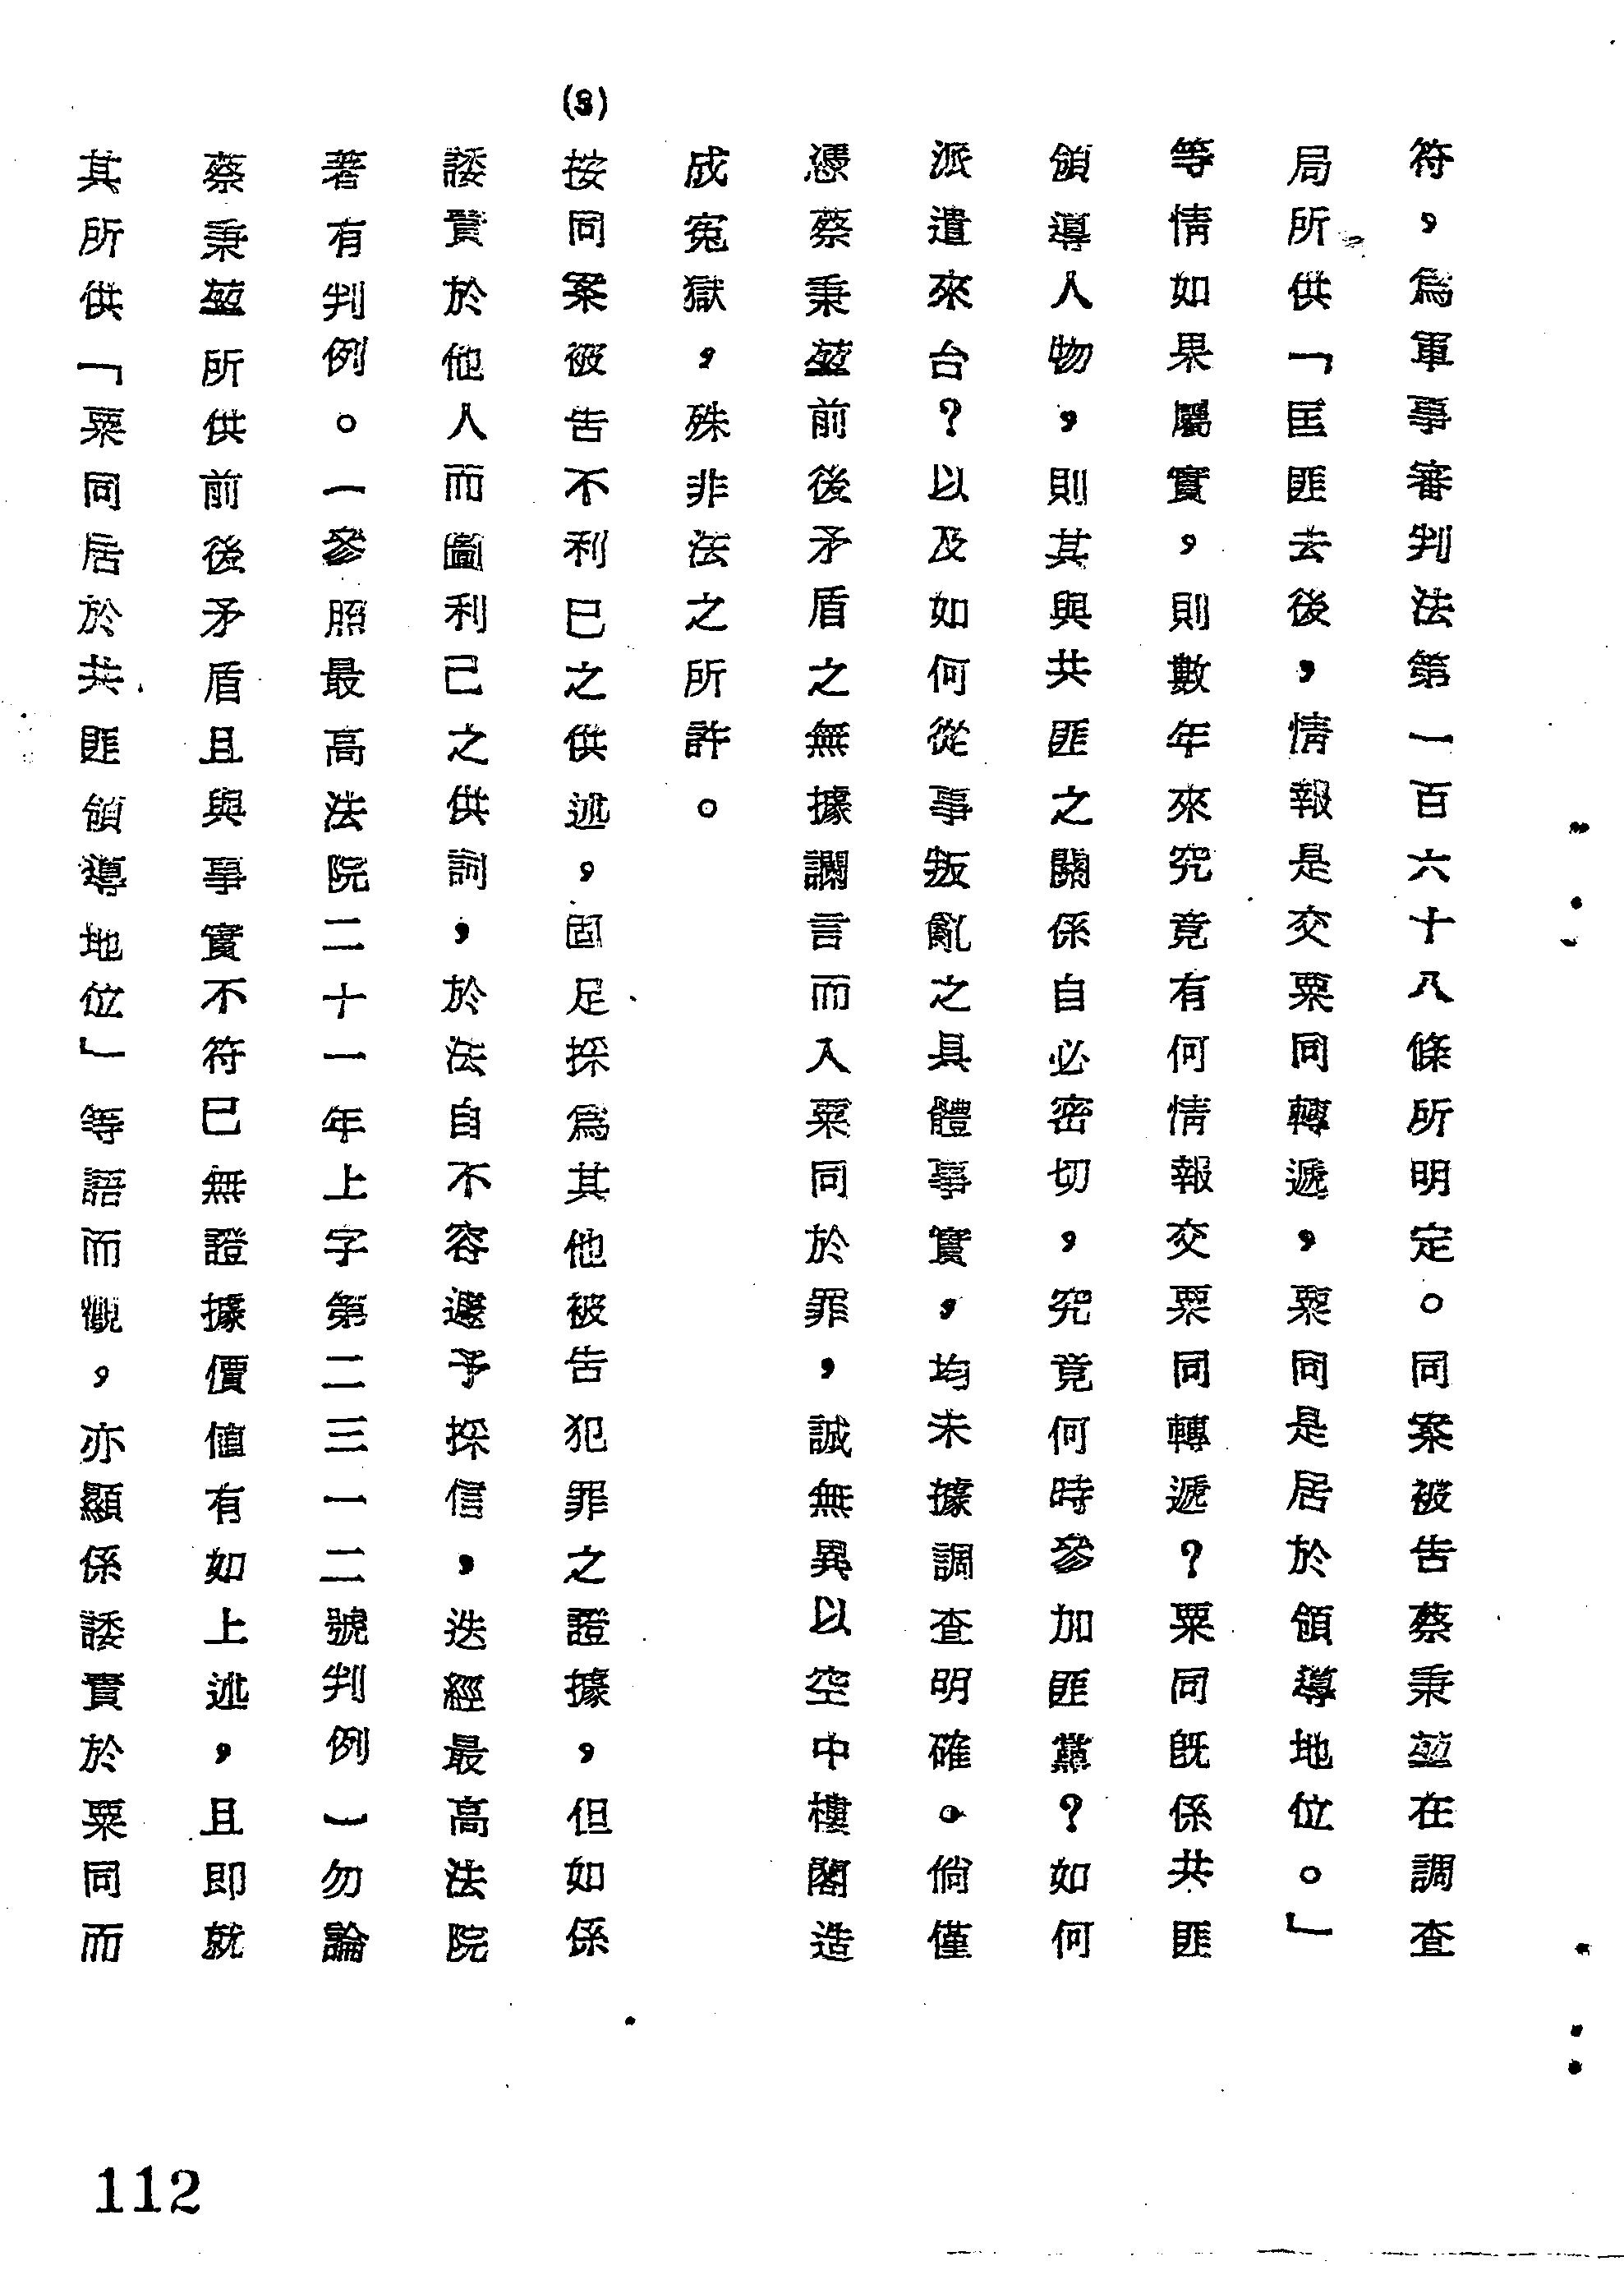 符，為軍事審判法第一百六十八條所明定。同案被告蔡秉堃在調查
局所供「匡匪去後，情報是交粟同轉遞，粟同是居於領導地位。」
等情如果屬實，則數年來究竟有何情報交粟同轉遞？粟同既係共匪
領導人物，則其與共匪之關係自必密切，究竟何時參加匪黨？如何
派遣來台？以及如何從事叛亂之具體事實，均未據調查明確。倘僅
憑蔡秉堃前後矛盾之無據讕言而入粟同於罪，誠無異以空中樓閣造
成冤獄，殊非法之所許。
(3)按同案被告不利己之供述，固足採為其他被告犯罪之證據，但如係
諉責於他人而圖利己之供詞，於法自不容遽予採信，迭經最高法院
著有判例。（參照最高法院二十一年上字第二三一二號判例）勿論
蔡秉堃所供前後矛盾且與事實不符已無證據價值有如上述，且即就
其所供「粟同居於共匪領導地位」等語而觀，亦顯係諉責於粟同而
112